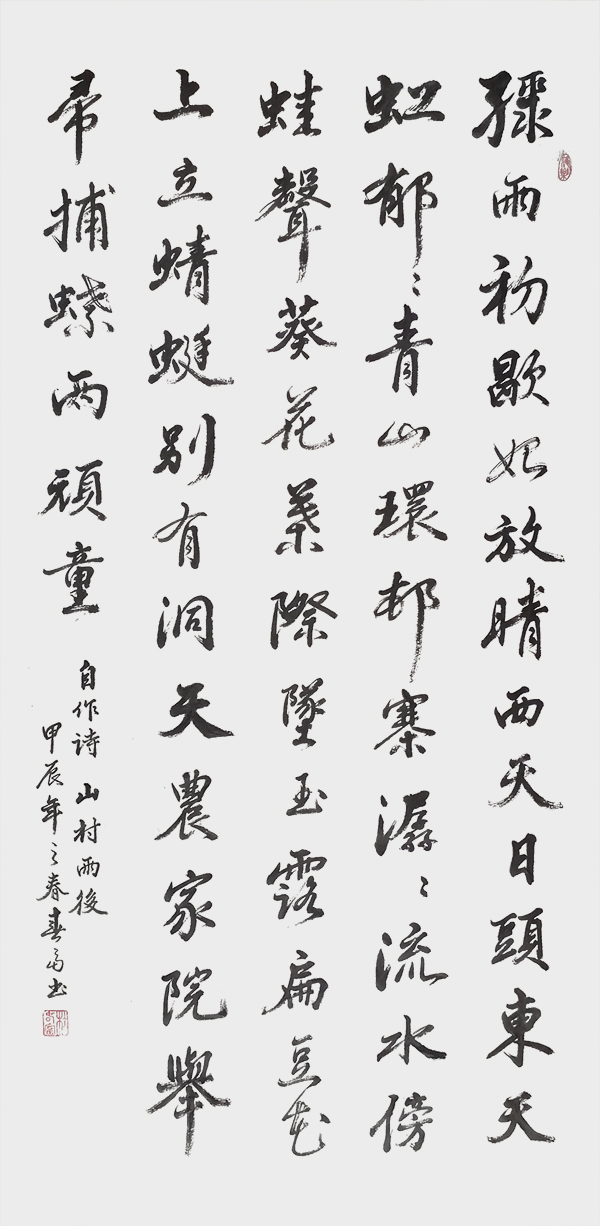 骤雨初歇始放晴西天日頭東天
虹郁〻青山環邨寨潺〻流水傍
蛙聲葵花葉際墜玉露扁豆花
上立蜻蜓别有洞天農家院舉
帚捕蝶两頑童
自作诗山村雨後
甲辰年之春春书